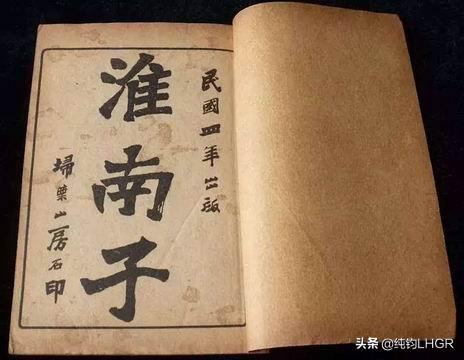 民國四年出版
淮南子
埽葉山房石印
头条 @纯钧LHGR